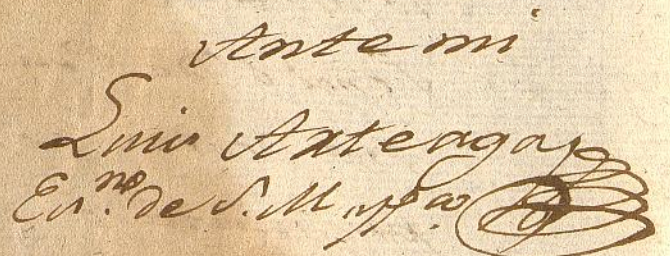 Ante mi
Luis Arteaga
Es.no de S. M. y pco